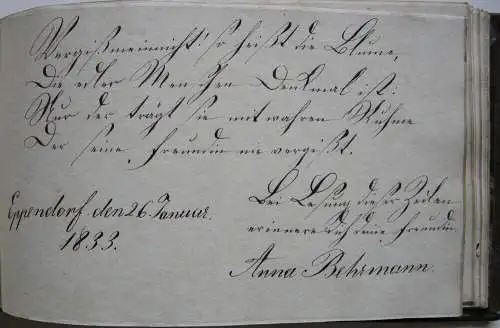 Vergißmeinnicht! so heißt die Blume,
Die edler Menschen Denkmal ist:
Nur der trägt sie mit wahren Ruhme
Der seine Freundin nie vergißt.
Eppendorf den 26. Januar.
1833.
Bei Lesung dieser Zeilen
erinnere dich deine Freundin
Anna Behrmann.